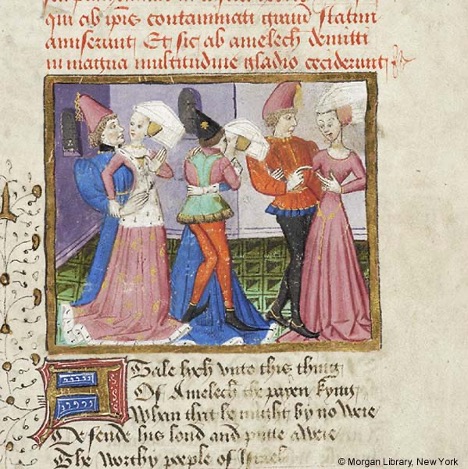 qui ab ipsis contaminati gratie statum
amiserunt Et sic ab amelech demitti
in magna multitudine gladio ceciderunt
Take hede vnto this thing
Of Amelech the payen kyng
Whan that he might by no weie
Defende his lond and putte aweie
The worthy people of Israel
© Morgan Library, New York